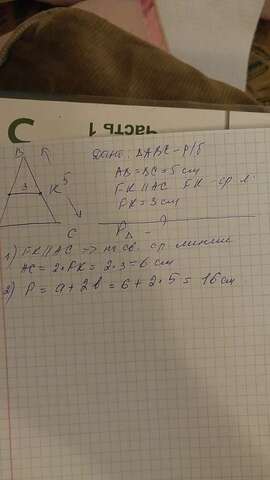 ЧАСТЬ 1
С
Дано: ΔABC - р/б
AB = BC = 5 см
FK || AC FK - ср. л.
FK = 3 см
PΔ - ?
B
F
K 5
3
C
1) FK || AC => по св. ср. линии
AC = 2 · FK = 2 · 3 = 6 см
2) P = a + 2b = 6 + 2 · 5 = 16 см